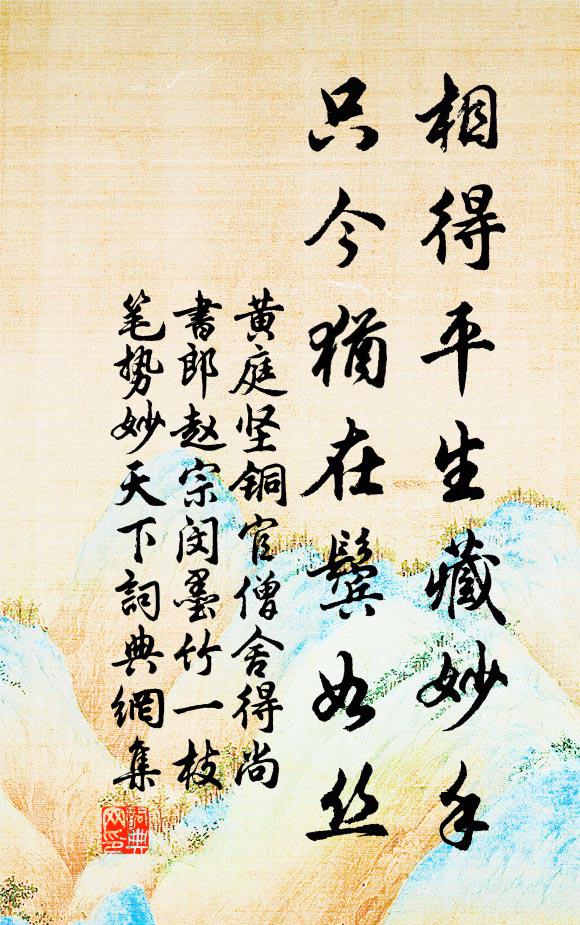 相得平生藏妙手
只今犹在鬓如丝
黄庭坚铜官僧舍得尚
書郎赵宗闵墨竹一枝
笔势妙天下詞典網集
詞典网印